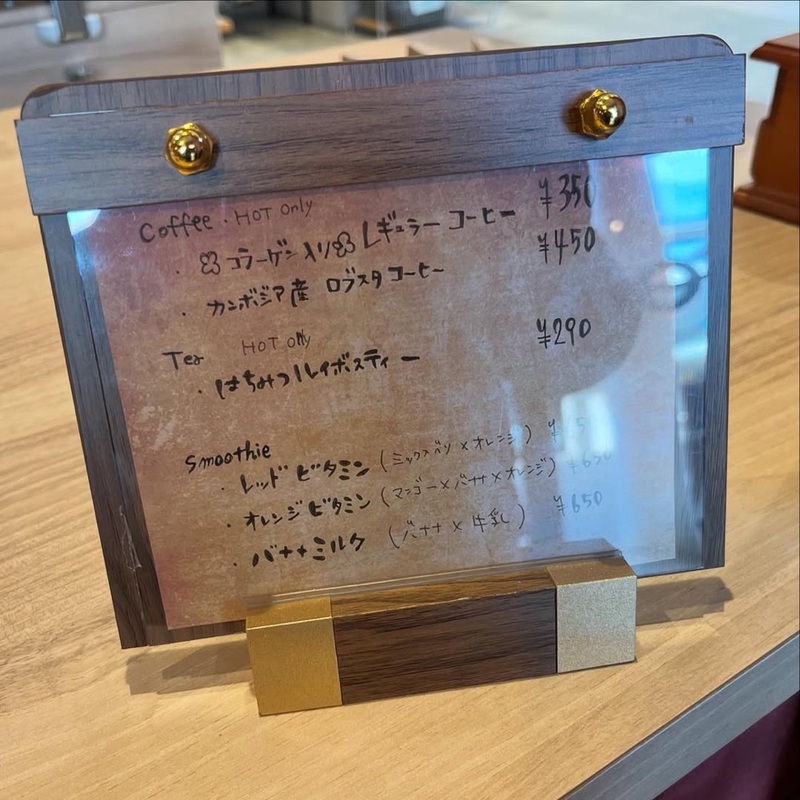 Coffee · HOT only
· コラーゲン入り レギュラーコーヒー ¥350
· カンボジア産 ロブスタコーヒー ¥450
Tea HOT only
· はちみつルイボスティー ¥290
Smoothie
· レッドビタミン (ミックスベリー×オレンジ)
· オレンジビタミン (マンゴー×バナナ×オレンジ) ¥650
· バナナミルク (バナナ×牛乳) ¥650